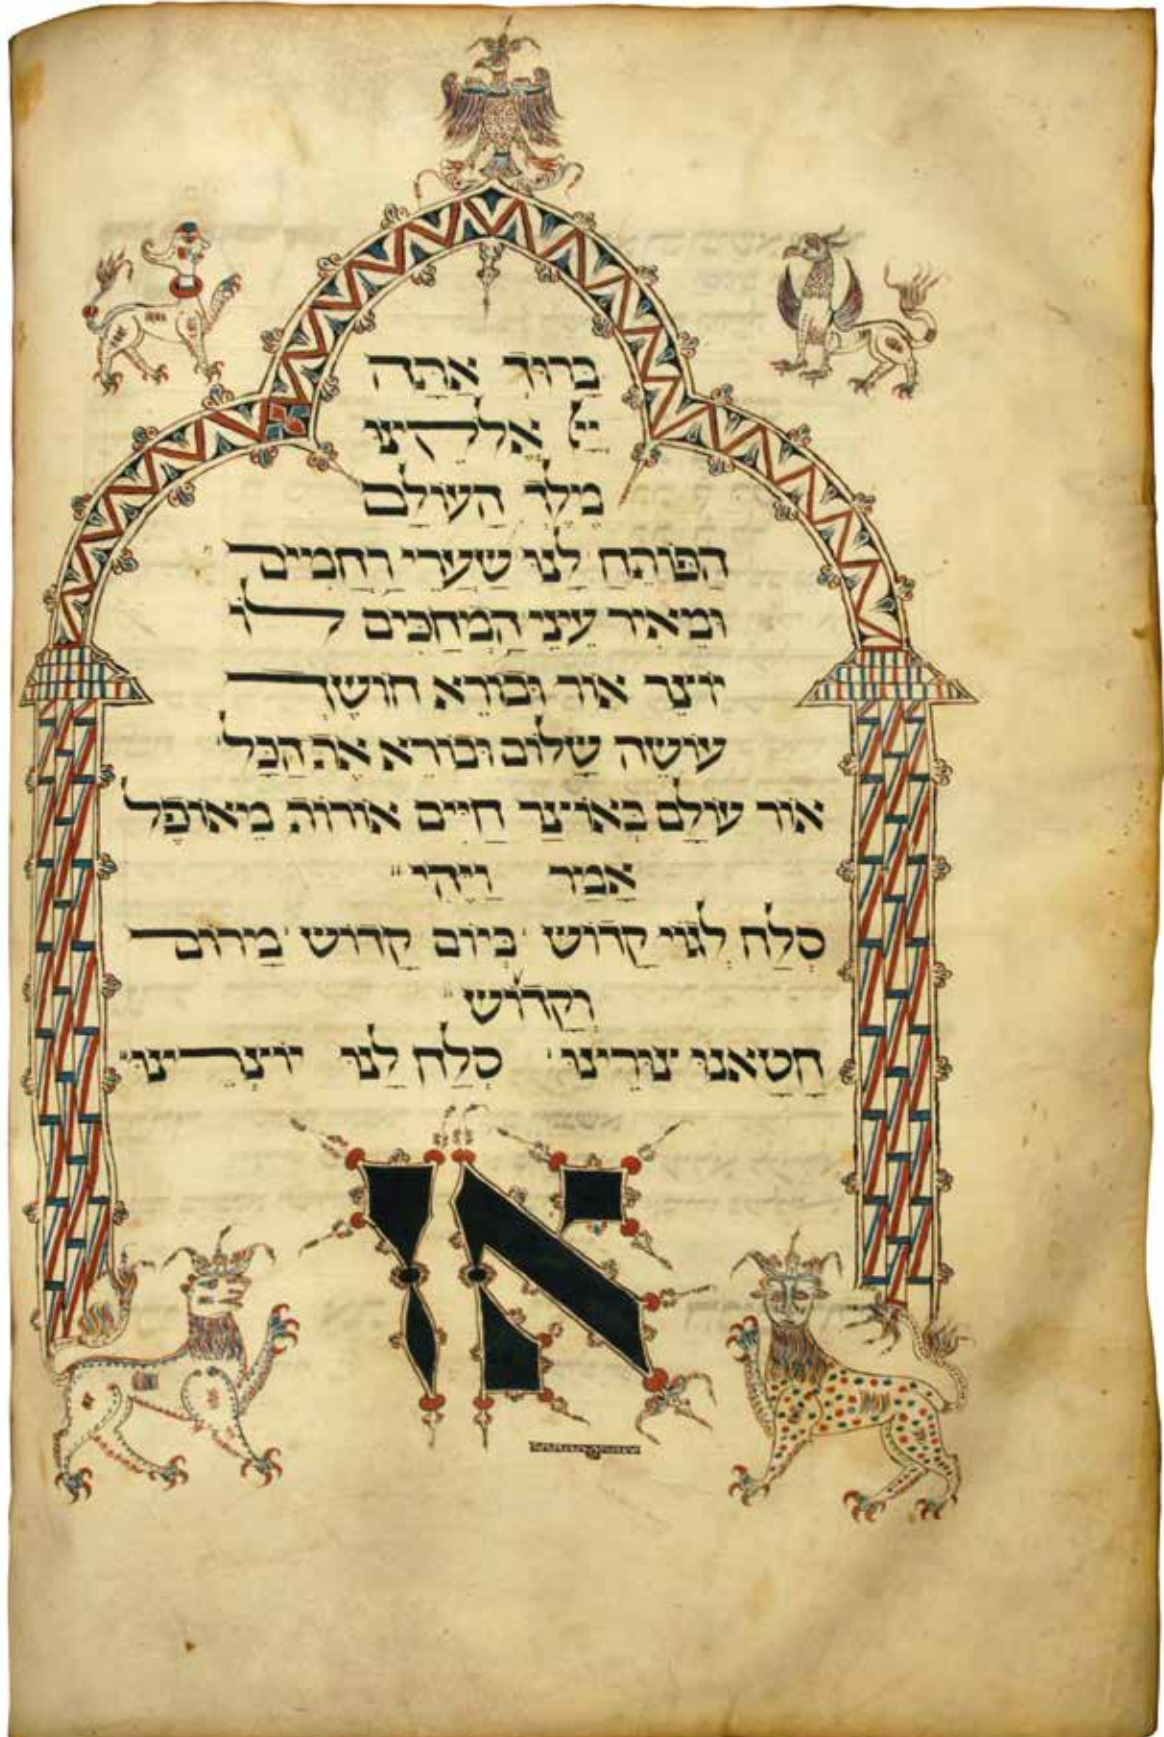 בָּרוּךְ אַתָּה
יְיָ אֱלֹקֵינוּ
מֶלֶךְ הָעוֹלָם
הַפּוֹתֵחַ לָנוּ שַׁעֲרֵי רַחֲמִים
וּמֵאִיר עֵינֵי הַמְחַכִּים לוֹ
יוֹצֵר אוֹר וּבוֹרֵא חוֹשֶׁךְ
עוֹשֶׂה שָׁלוֹם וּבוֹרֵא אֶת הַכָּל
אוֹר עוֹלָם בְּאוֹצַר חַיִּים אוֹרוֹת מֵאוֹפֶל
אָמַר וַיֶּהִי
סְלַח לְגוֹי קָדוֹשׁ בְּיוֹם קָדוֹשׁ מָרוֹם
וְקָדוֹשׁ
חָטָאנוּ צוּרֵינוּ סְלַח לָנוּ יוֹצְרֵינוּ
אז